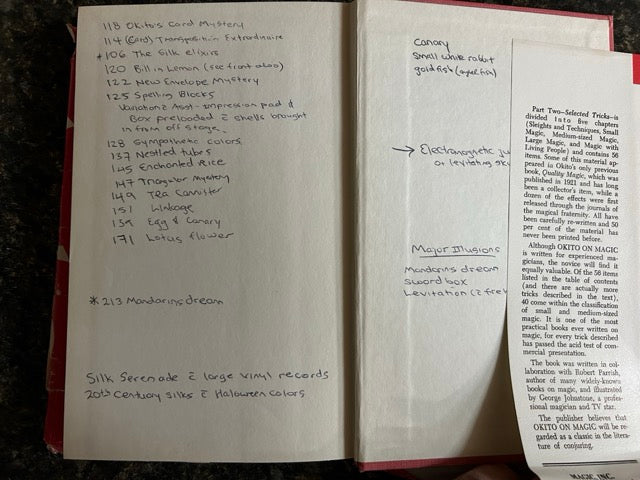 118 Okito's Card Mystery
114 (Card) Transposition Extrordinaire
* 106 The Silk elixirs
120 Bill in Lemon (see front also)
122 New Envelope Mystery
125 Spelling Blocks
Variation 2 Asst - impression pad &
Box preloaded c̄ shells brought
in from off stage.
128 Sympathetic colors
137 Nestled tubes
145 Enchanted Rice
147 Triangular Mystery
149 Tea Cannister
151 Linkage
159 Egg & Canary
171 Lotus flower
* 213 Mandarins dream
Silk Serenade c̄ large vinyl records
20th Century silks c̄ Haloween colors
Canary
small white rabbit
gold fish
→ Electromagnetic
or levitating
Major Illusions
Mandarins dream
sword box
Levitation (c̄
Part Two—Selected Tricks—is
divided into five chapters
(Sleights and Techniques, Small
Magic, Medium-sized Magic,
Large Magic, and Magic with
Living People) and contains 56
items. Some of this material ap-
peared in Okito's only previous
book, Quality Magic, which was
published in 1921 and has long
been a collector's item, while a
dozen of the effects were first
released through the journals of
the magical fraternity. All have
been carefully re-written and 50
per cent of the material has
never been printed before.
Although OKITO ON MAGIC
is written for experienced ma-
gicians, the novice will find it
equally valuable. Of the 56 items
listed in the table of contents
(and there are actually more
tricks described in the text),
40 come within the classification
of small and medium-sized
magic. It is one of the most
practical books ever written on
magic, for every trick described
has passed the acid test of com-
mercial presentation.
The book was written in col-
laboration with Robert Parrish,
author of many widely-known
books on magic, and illustrated
by George Johnstone, a pro-
fessional magician and TV star.
The publisher believes that
OKITO ON MAGIC will be re-
garded as a classic in the litera-
ture of conjuring.
MAGIC, INC.